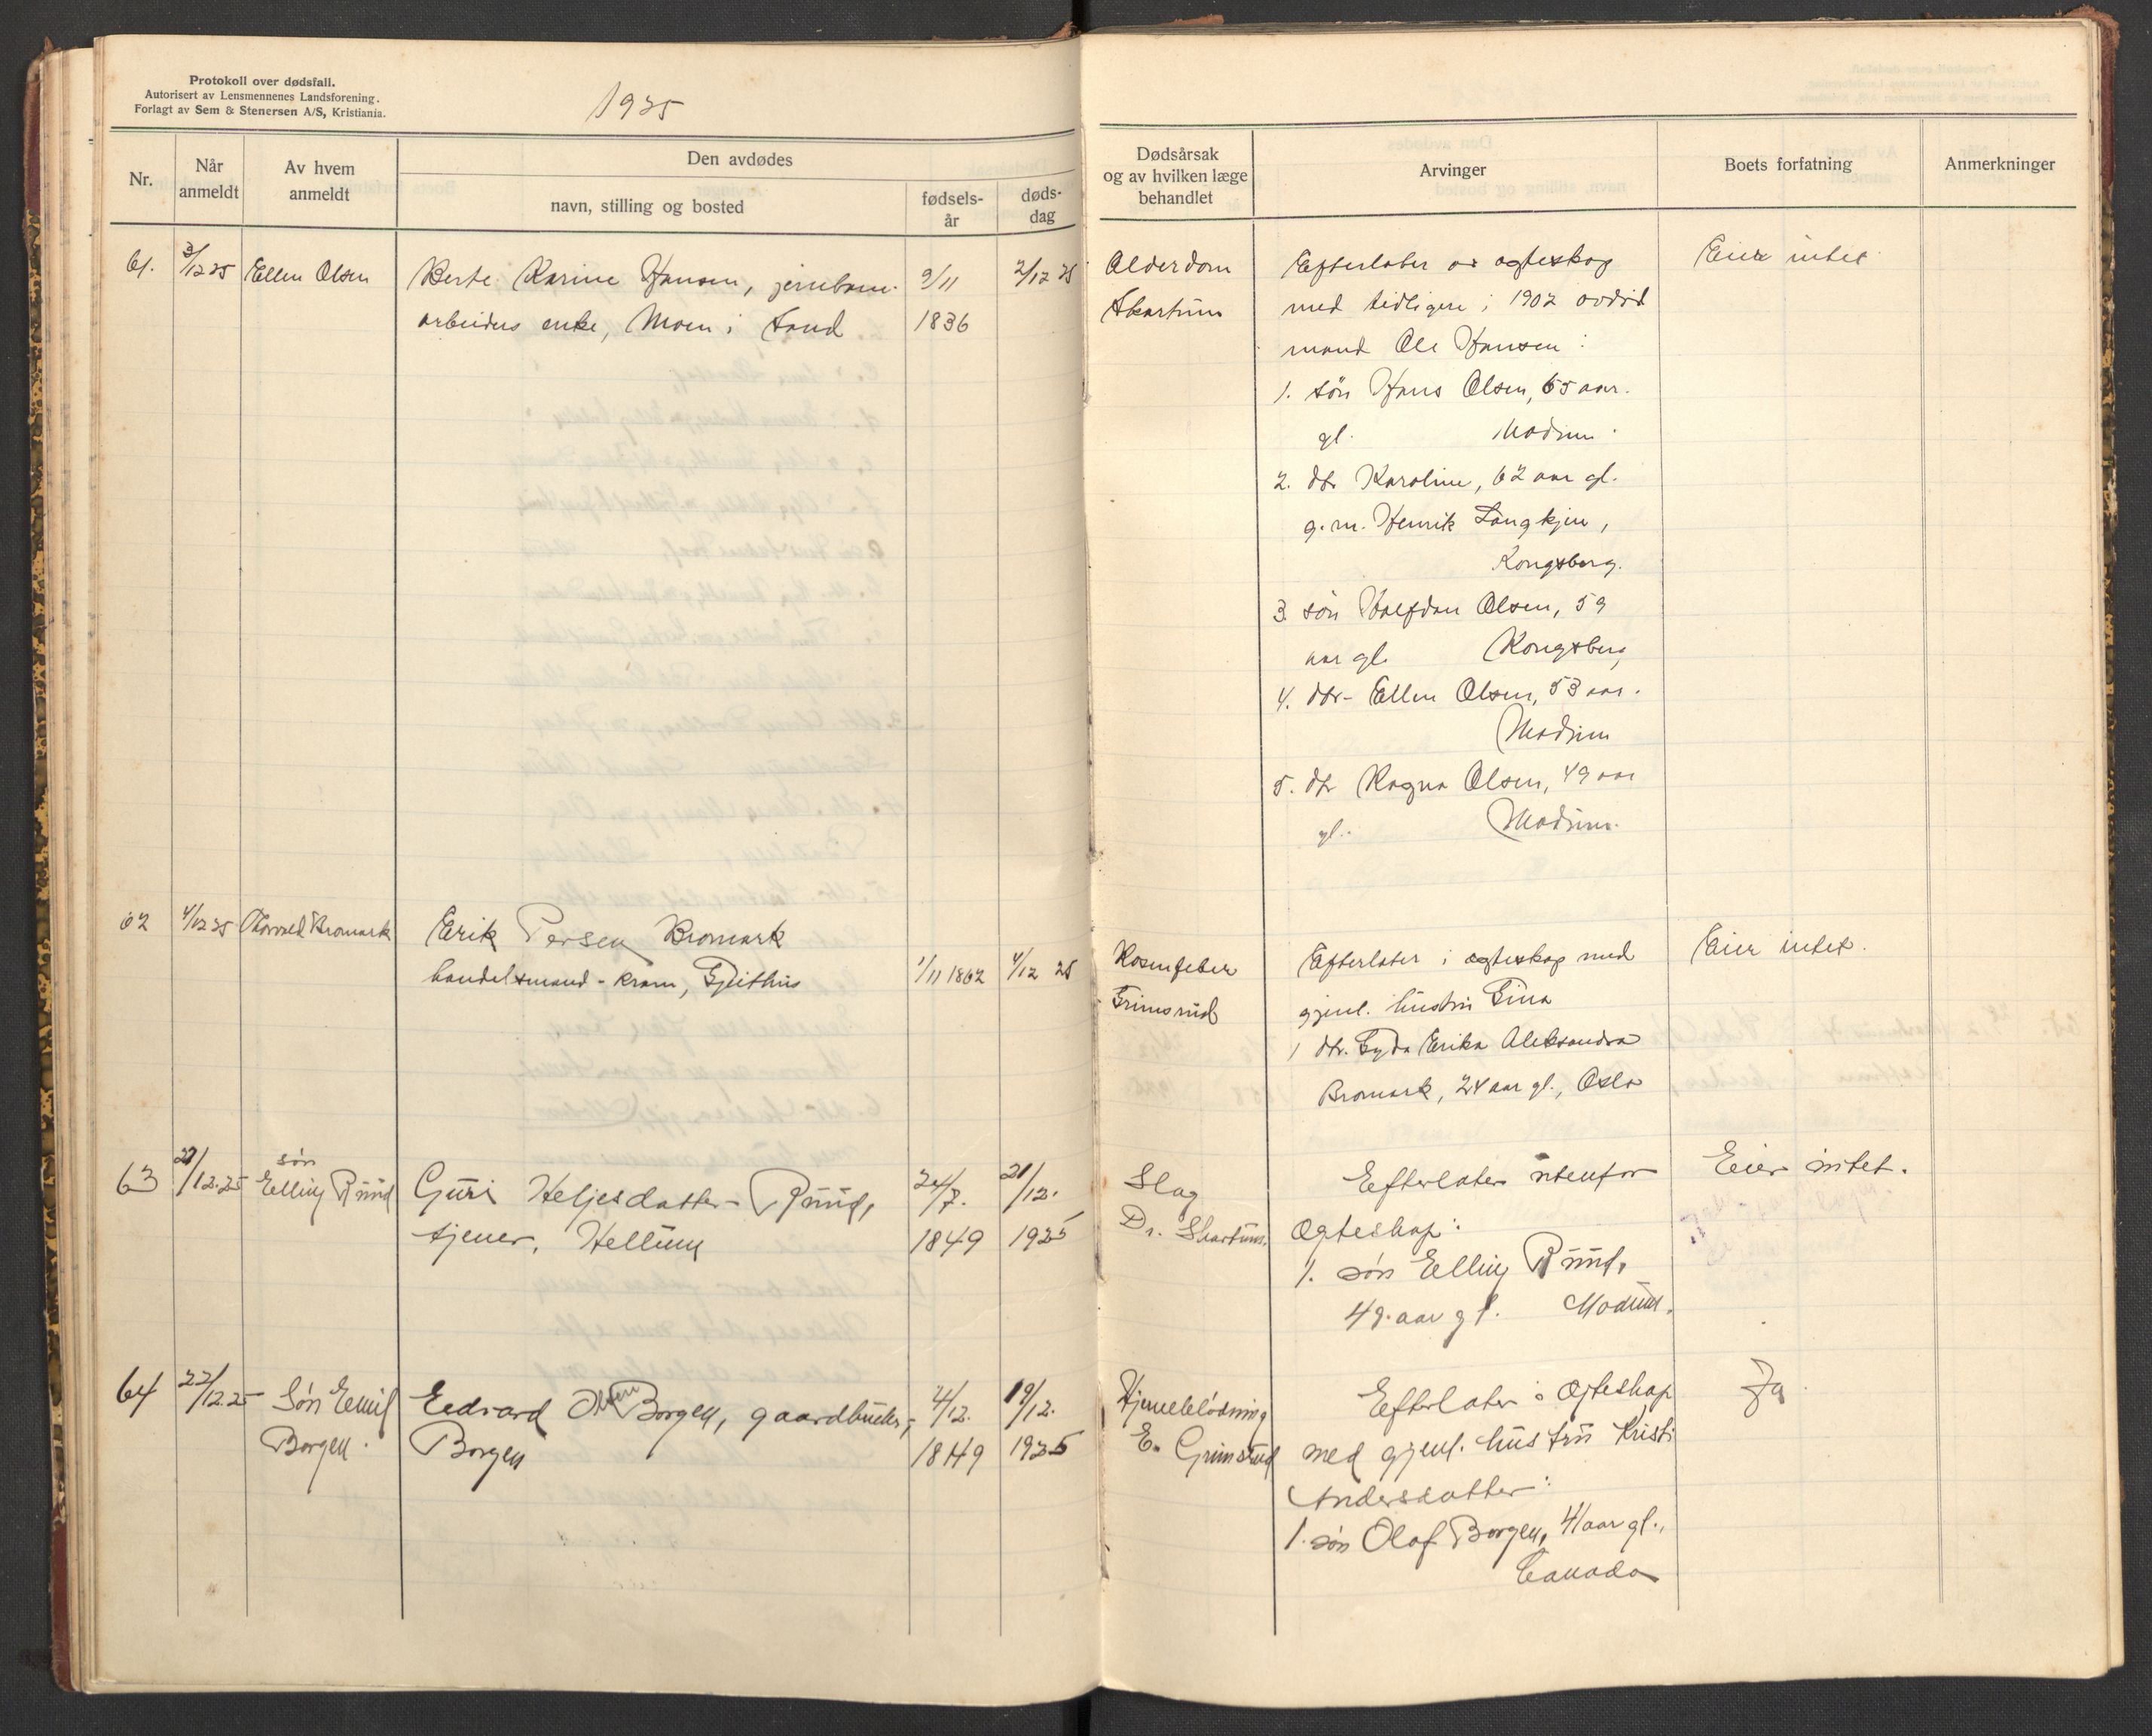 Protokoll over dødsfall.
Autorisert av Lensmennenes Landsforening.
Forlagt av Sem & Stenersen A/S, Kristiania.
1925
Nr.
Når anmeldt
Av hvem anmeldt
Den avdødes
navn, stilling og bosted
fødsels-år
døds-dag
Dødsårsak
og av hvilken læge
behandlet
Arvinger
Boets forfatning
Anmerkninger
61.
3/12 25
Ellen Olsen
Berte Karine Hansen, jernbane-
arbeiders enke, Moen i Sand
9/11
1836
2/12 25
Alderdom
Skartum
Efterlater av ægteskap
med tidligere i 1902 avdød
mand Ole Hansen:
1. søn Hans Olsen, 65 aar.
gl. Modum.
2. dtr Karoline, 62 aar gl.
g.m. Henrik Langkjen,
Kongsberg.
3. søn Halfdan Olsen, 59
aar gl. Kongsberg
4. dtr- Ellen Olsen, 53 aar.
Modum
5. dtr Ragna Olsen, 49 aar
gl. Modum.
Eier intet.
62
4/12 25
Thorvald Bromark
Erik Persen Bromark
handelsmand - kram, Gjeithus
1/11 1862
4/12 25
Rosenfeber
Grimsrud
Efterlater i ægteskap med
gjenl. hustru Gina
1 dtr. Gyda Erika Aleksandra
Bromark, 24 aar gl., Oslo
Eier intet.
63
22/12.25
søn
Elling Ruud
Guri Heljesdatter Ruud,
tjener, Hellum
24/7.
1849
21/12.
1925
Slag
Dr. Skartum.
Efterlater utenfor
Ægteskap:
1. søn Elling Ruud,
49. aar gl. Modum.
Eier intet.
64
22/12.25
Søn Emil
Borgen.
Edvard Olsen Borgen, gaardbruker,
Borgen
4/12.
1849
19/12.
1925
Hjerneblødning
E. Grimsrud
Efterlater i Ægteskap
med gjenl. hustru Kristi
Andersdatter:
1. søn Olaf Borgen, 41 aar gl.,
Canada
Ja